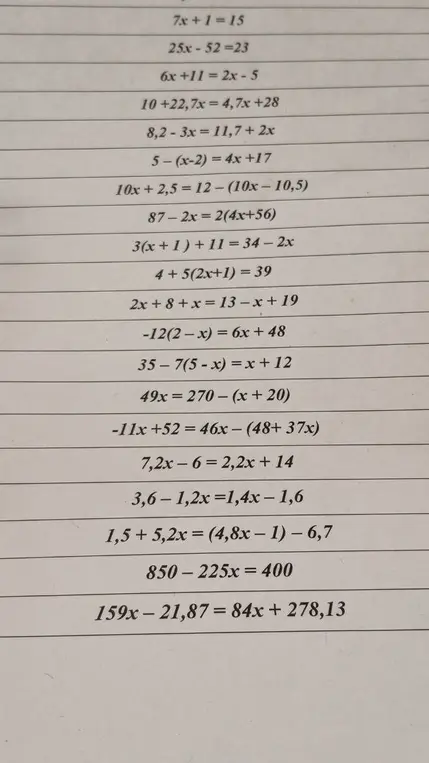 7x + 1 = 15
25x - 52 =23
6x +11 = 2x - 5
10 +22,7x = 4,7x +28
8,2 - 3x = 11,7 + 2x
5 – (x-2) = 4x +17
10x + 2,5 = 12 – (10x – 10,5)
87 – 2x = 2(4x+56)
3(x + 1 ) + 11 = 34 – 2x
4 + 5(2x+1) = 39
2x + 8 + x = 13 – x + 19
-12(2 – x) = 6x + 48
35 – 7(5 - x) = x + 12
49x = 270 – (x + 20)
-11x +52 = 46x – (48+ 37x)
7,2x – 6 = 2,2x + 14
3,6 – 1,2x =1,4x – 1,6
1,5 + 5,2x = (4,8x – 1) – 6,7
850 – 225x = 400
159x – 21,87 = 84x + 278,13